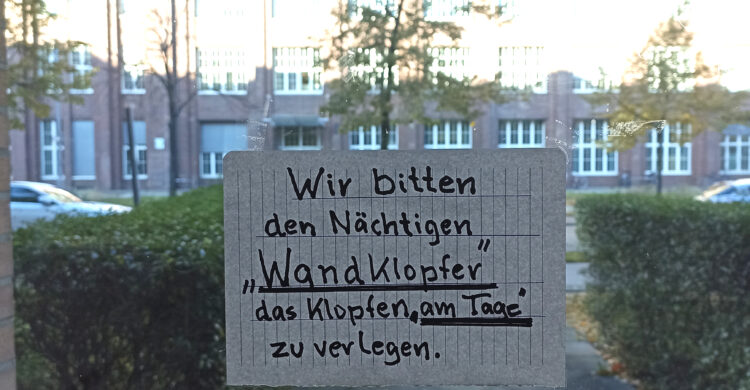 Wir bitten
den Nächtigen
„WandKlopfer"
das Klopfen „am Tage"
zu verlegen.